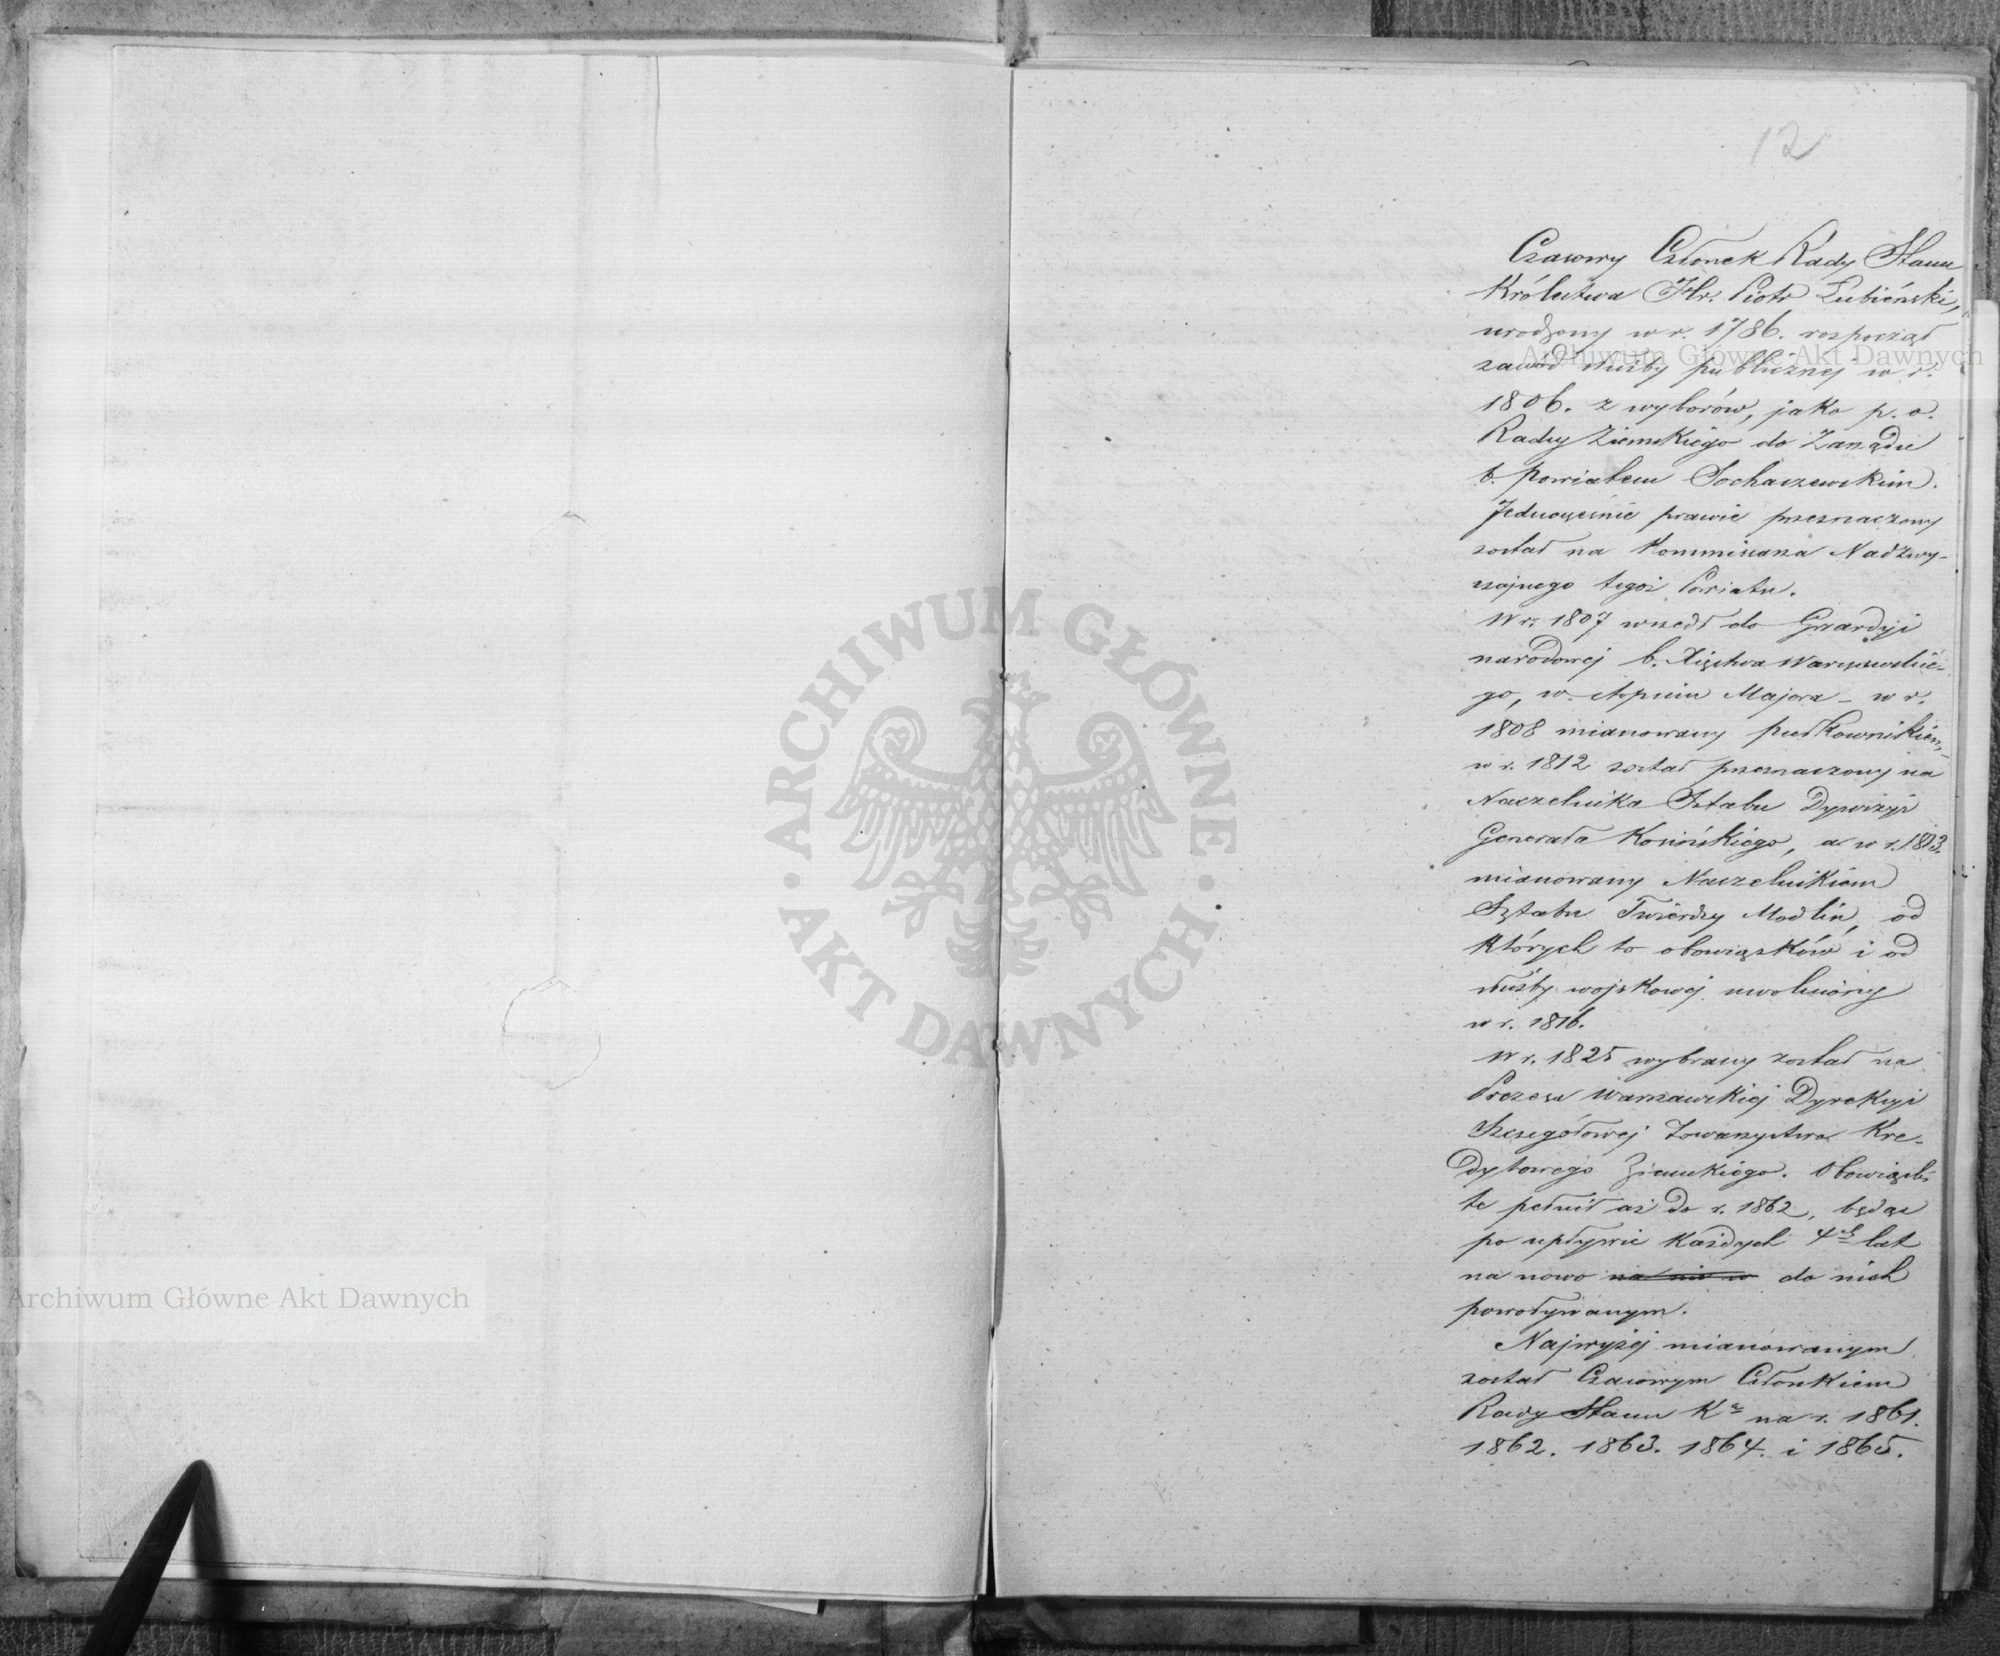 12
Czasowy Członek Rady Stanu
Królestwa Hr. Piotr Łubieński,
urodzony w r. 1786. rozpoczął
zawód służby publicznej w r.
1806. z wyborów, jako p. o.
Radzy Ziemskiego do Zarządu
b. powiatem Sochaczewskim.
Jednocześnie prawie przeznaczony
został na Kommissarza Nadzwy-
czajnego tegoż Powiatu.
W r. 1807 wszedł do Gwardyi
narodowej b. Xięstwa Warszawskie-
go, w stopniu Majora – w r.
1808 mianowany pułkownikiem,
w r. 1812 został przeznaczony na
Naczelnika Sztabu Dywizyi
Generała Kosińskiego, a w r. 1813.
mianowany Naczelnikiem
Sztabu Twierdzy Modlin, od
których to obowiązków i od
służby wojskowej uwolniony
w r. 1816.
W r. 1825 wybrany został na
Prezesa Warszawskiej Dyrekcyi
Szczegółowej Towarzystwa Kre-
dytowego Ziemskiego. Obowiązki
te pełnił aż do r. 1862, będąc
po upływie każdych 4ch lat
na nowo do nich
powoływanym.
Najwyżej mianowanym
został Czasowym Członkiem
Rady Stanu Kr na r. 1861.
1862. 1863. 1864. i 1865.
Archiwum Główne Akt Dawnych
Archiwum Główne Akt Dawnych
ARCHIWUM GŁÓWNE
AKT DAWNYCH